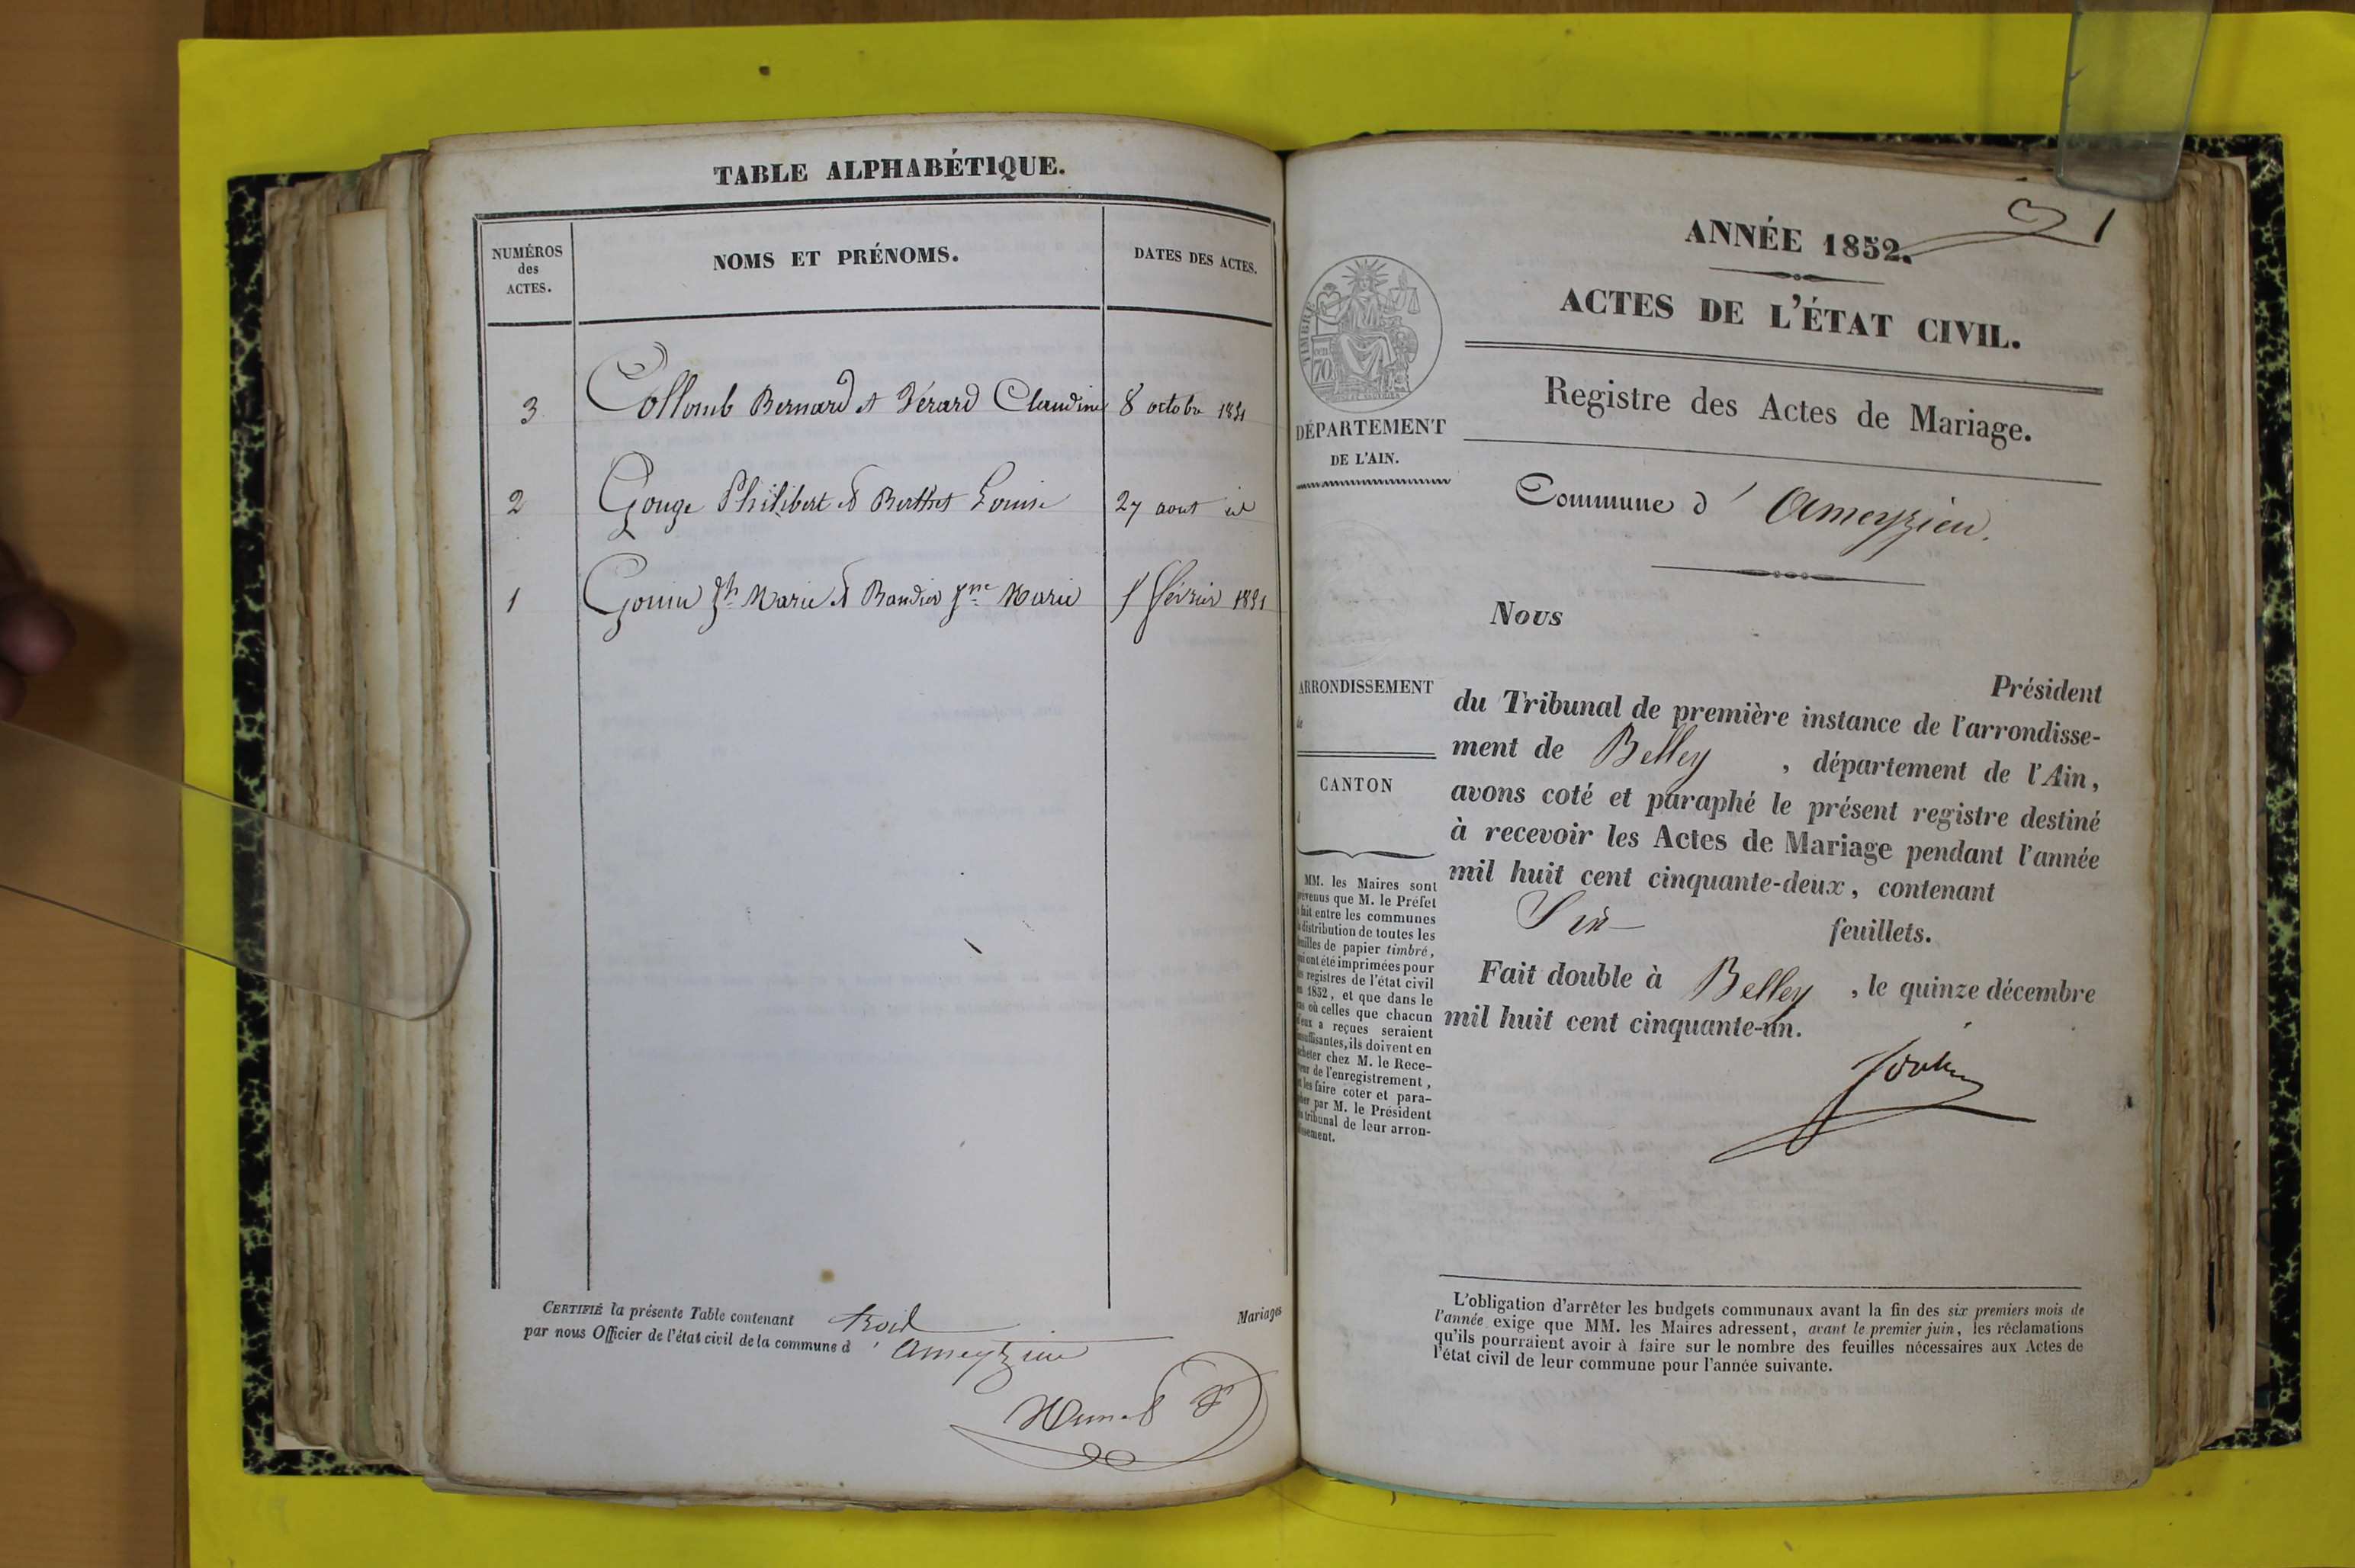 TABLE ALPHABÉTIQUE.
NUMÉROS
des
ACTES.
NOMS ET PRÉNOMS.
DATES DES ACTES.
3 Collomb Bernard et Férard Claudine 8 octobre 1851
2 Gouge Philibert et Berthet Louise 27 aout id
1 Gonin Jh Marie et Baudin Jne Marie 1er février 1851
CERTIFIÉ la présente Table contenant trois Mariages
par nous Officier de l'état civil de la commune d' Ameyzieu
1
ANNÉE 1852.
ACTES DE L'ÉTAT CIVIL.
Registre des Actes de Mariage.
Commune d' Ameyzieu.
TIMBRE
70
DÉPARTEMENT
DE L'AIN.
ARRONDISSEMENT
CANTON
MM. les Maires sont
prévenus que M. le Préfet
a fait entre les communes
la distribution de toutes les
feuilles de papier timbré,
qui ont été imprimées pour
les registres de l'état civil
en 1852, et que dans le
cas où celles que chacun
d'eux a reçues seraient
insuffisantes, ils doivent en
acheter chez M. le Rece-
veur de l'enregistrement,
et les faire coter et para-
pher par M. le Président
du tribunal de leur arron-
dissement.
Nous
Président
du Tribunal de première instance de l'arrondisse-
ment de Belley, département de l'Ain,
avons coté et paraphé le présent registre destiné
à recevoir les Actes de Mariage pendant l'année
mil huit cent cinquante-deux, contenant
Six feuillets.
Fait double à Belley, le quinze décembre
mil huit cent cinquante-un.
L'obligation d'arrêter les budgets communaux avant la fin des six premiers mois de
l'année exige que MM. les Maires adressent, avant le premier juin, les réclamations
qu'ils pourraient avoir à faire sur le nombre des feuilles nécessaires aux Actes de
l'état civil de leur commune pour l'année suivante.